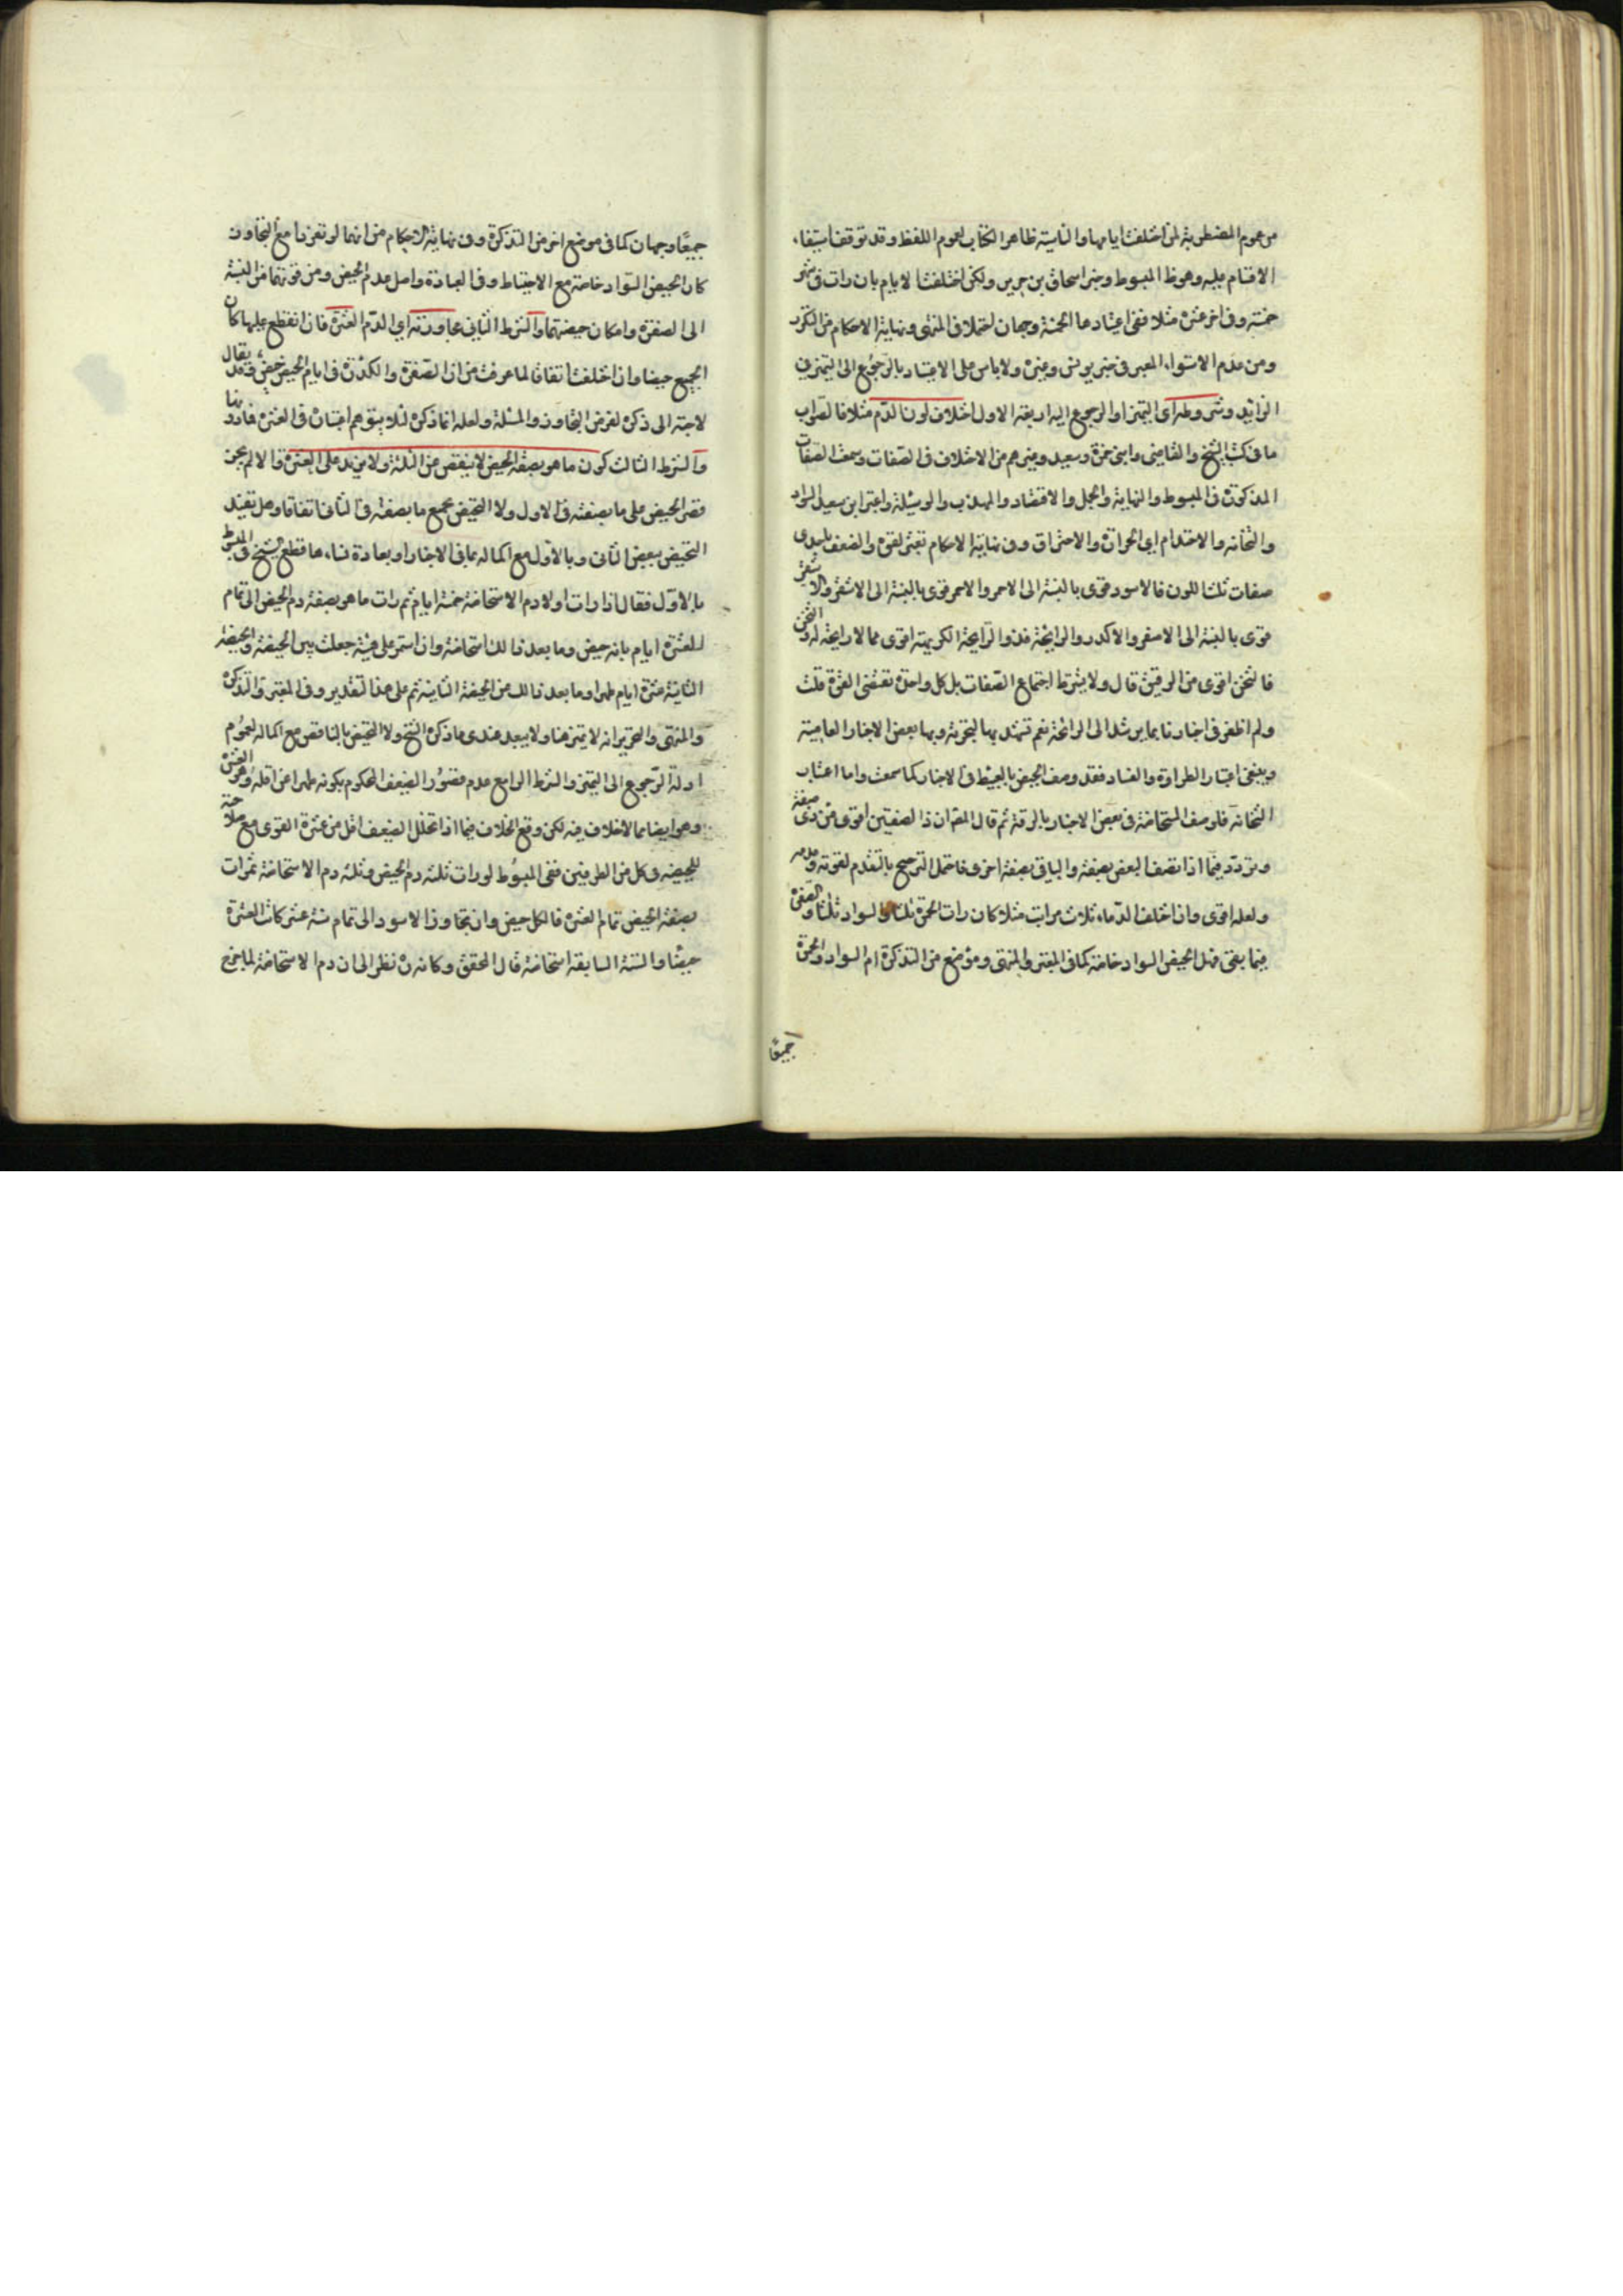 من عموم المضطربة لمن اختلفت ايامها والناسية ظاهرا لكتاب لعموم اللفظ وقد توقف استيفاء
الاقسام عليه وهو ظ المبسوط وخبر اسحاق بن جرير ولكن اختلفت الايام بان رات في شهر
خمسة وفي اخر عشرة مثلا ففي اعتبارها الخمسة وجهان احتملا في المنتهى ونهاية الاحكام من التكرر
ومن عدم الاستواء المعبر في خبر يونس وغيره ولا باس على الاعتبار بالرجوع الى التميز في
الزايد وشروطه اى التميز او الرجوع اليه اربعة الاول اختلاف لون الدم مثلا فالصواب
ما في كتب الشيخ والقاضي وابني حمزة وسعيد وغيرهم من الاختلاف في الصفات وسمعت الصفات
المذكورة في المبسوط والنهاية والجمل والاقتصاد والمهذب والوسيلة واعتبر ابن سعيد السواد
والثخانة والاحتدام اي الحرارة والاحتراق وفي نهاية الاحكام تعتبر القوة والضعف باحدى
صفات ثلث اللون فالاسود قوى بالنسبة الى الاحمر والاحمر قوى بالنسبة الى الاشقر والاشقر
قوى بالنسبة الى الاصفر والاكدر والرايحة فذو الرايحة الكريهة اقوى مما لا رايحة له والثخن
فالثخن اقوى من الرقيق قال ولا يشترط اجتماع الصفات بل كل واحدة تقتضى القوة قلت
ولم اظفر في اخبارنا بما يرشد الى الرائحة نعم تشهد بها التجربة وبها بعض الاخبار العامية
وينبغى اعتبار الطراوة والفساد فقد وصف الحيض بالعبيط في الاخبار كما سمعت واما اعتبار
الثخانة فلوصف المستحاضة في بعض الاخبار بالرقة ثم قال المص ان ذا الصفتين اقوى من ذى صفة
وتردد فيما اذا تصف البعض بصفة والباقي بصفة اخرى فاحتمل الترجيح بالتقدم لقوته وعدمه
ولعله اقوى واذا اختلف الدماء ثلاث مراتب مثلا كان رات الحمرة ثلثا والسواد ثلثا والصفرة
فيما بقى فهل الحيض السواد خاصة كما في المعتبر والمنتهى وموضع من التذكرة ام السواد والحمرة
جميعًا
جميعًا وجهان كما في موضع اخر من التذكرة وفي نهاية الاحكام من انهما لو تفردا مع التجاوز
كان الحيض السواد خاصة مع الاحتياط وفي العبادة واصل عدم الحيض ومن قوتهما من النسبة
الى الصفرة وامكان حيضهما والشرط الثاني مجاوزته اي الدم العشرة فان انقطع عليها كان
الجميع حيضا وان اختلفت اتفاقا لما عرفت من ان الصفرة والكدرة في ايام الحيض حيض وقد يقال
لا حاجة الى ذكره لفرض التجاوز والمسئلة ولعله انما ذكره لئلا يتوهم اعتباره في العشرة فما دونها
والشرط الثالث كون ما هو بصفة الحيض لا ينقص من الثلثة ولا يزيد على العشرة والا لم يجز
قصر الحيض على ما بصفته في الاول ولا التحيض بجميع ما بصفته في الثاني اتفاقا وهل تقيد
التحيض ببعض الثاني وبالاول مع اكماله بما في الاخبار او بعادة نساءها قطع الشيخ في المبسوط
بالاول فقال اذا رات اولا دم الاستحاضة خمسة ايام ثم رات ما هو بصفة دم الحيض الى تمام
العشرة ايام بانه حيض وما بعد ذالك استحاضة وان استمر على هيئته جعلت بين الحيضة والحيضة
الثانية عشرة ايام طهرا وما بعد ذالك من الحيضة الثانية ثم على هذا التقدير وفي المعتبر والتذكرة
والمنتهى والتحرير انه لا تميز هنا ولا يبعد عندى ما ذكره الشيخ ولا التحيض بالناقص مع اكماله لعموم
ادلة الرجوع الى التميز والشرط الرابع عدم قصور الضعيف المحكوم بكونه طهرا عن اقله وهو العشرة
وهو ايضا مما لا خلاف فيه لكن وقع الخلاف فيما اذا تخلل الضعيف اقل من عشرة القوى مع صلاحية
للحيضية وكل من الطرفين ففي المبسوط لو رات ثلثه دم الحيض وثلثه دم الاستحاضة ثم رات
بصفة الحيض تمام العشرة فالكل حيض وان تجاوز الاسود الى تمام ستة عشر كانت العشرة
حيضا والستة السابقة استحاضة قال المحقق وكانه ره نظر الى ان دم الاستحاضة لما خرج